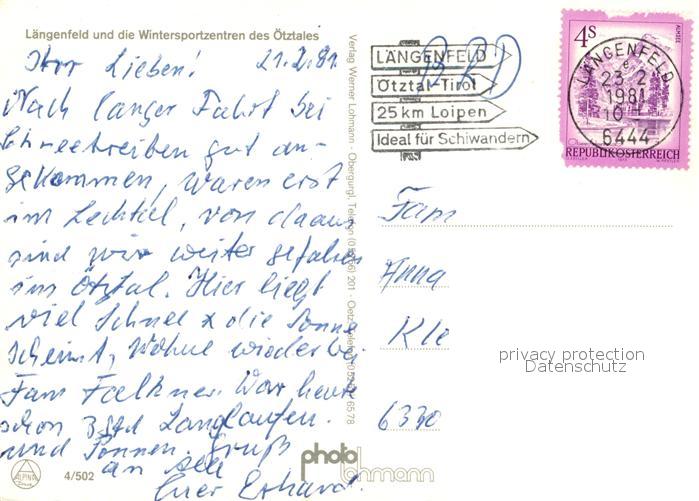 Längenfeld und die Wintersportzentren des Ötztales
Ihr Lieben! 21.2.81
Nach langer Fahrt bei
Schneetreiben gut an-
gekommen, waren erst
im Lechtal, von da aus
sind wir weiter gefahren
ins Ötztal. Hier liegt
viel Schnee & die Sonne
scheint, Wohne wieder bei
Fam Falkner. War heute
schon 3 Std Langlaufen.
und Sonnen. Gruß
an alle
Euer Erhard.
ALPINA
4/502
Verlag Werner Lohmann - Obergurgl, Telefon 201 - Oetz, Telefon 65 78
BRD
LÄNGENFELD
Ötztal-Tirol
25 km Loipen
Ideal für Schiwandern
4S
ALMSEE
REPUBLIK ÖSTERREICH
LÄNGENFELD
e
23.2.
1981
10
6444
Fam
Anna
Kle
6330
privacy protection
Datenschutz
photo
lohmann